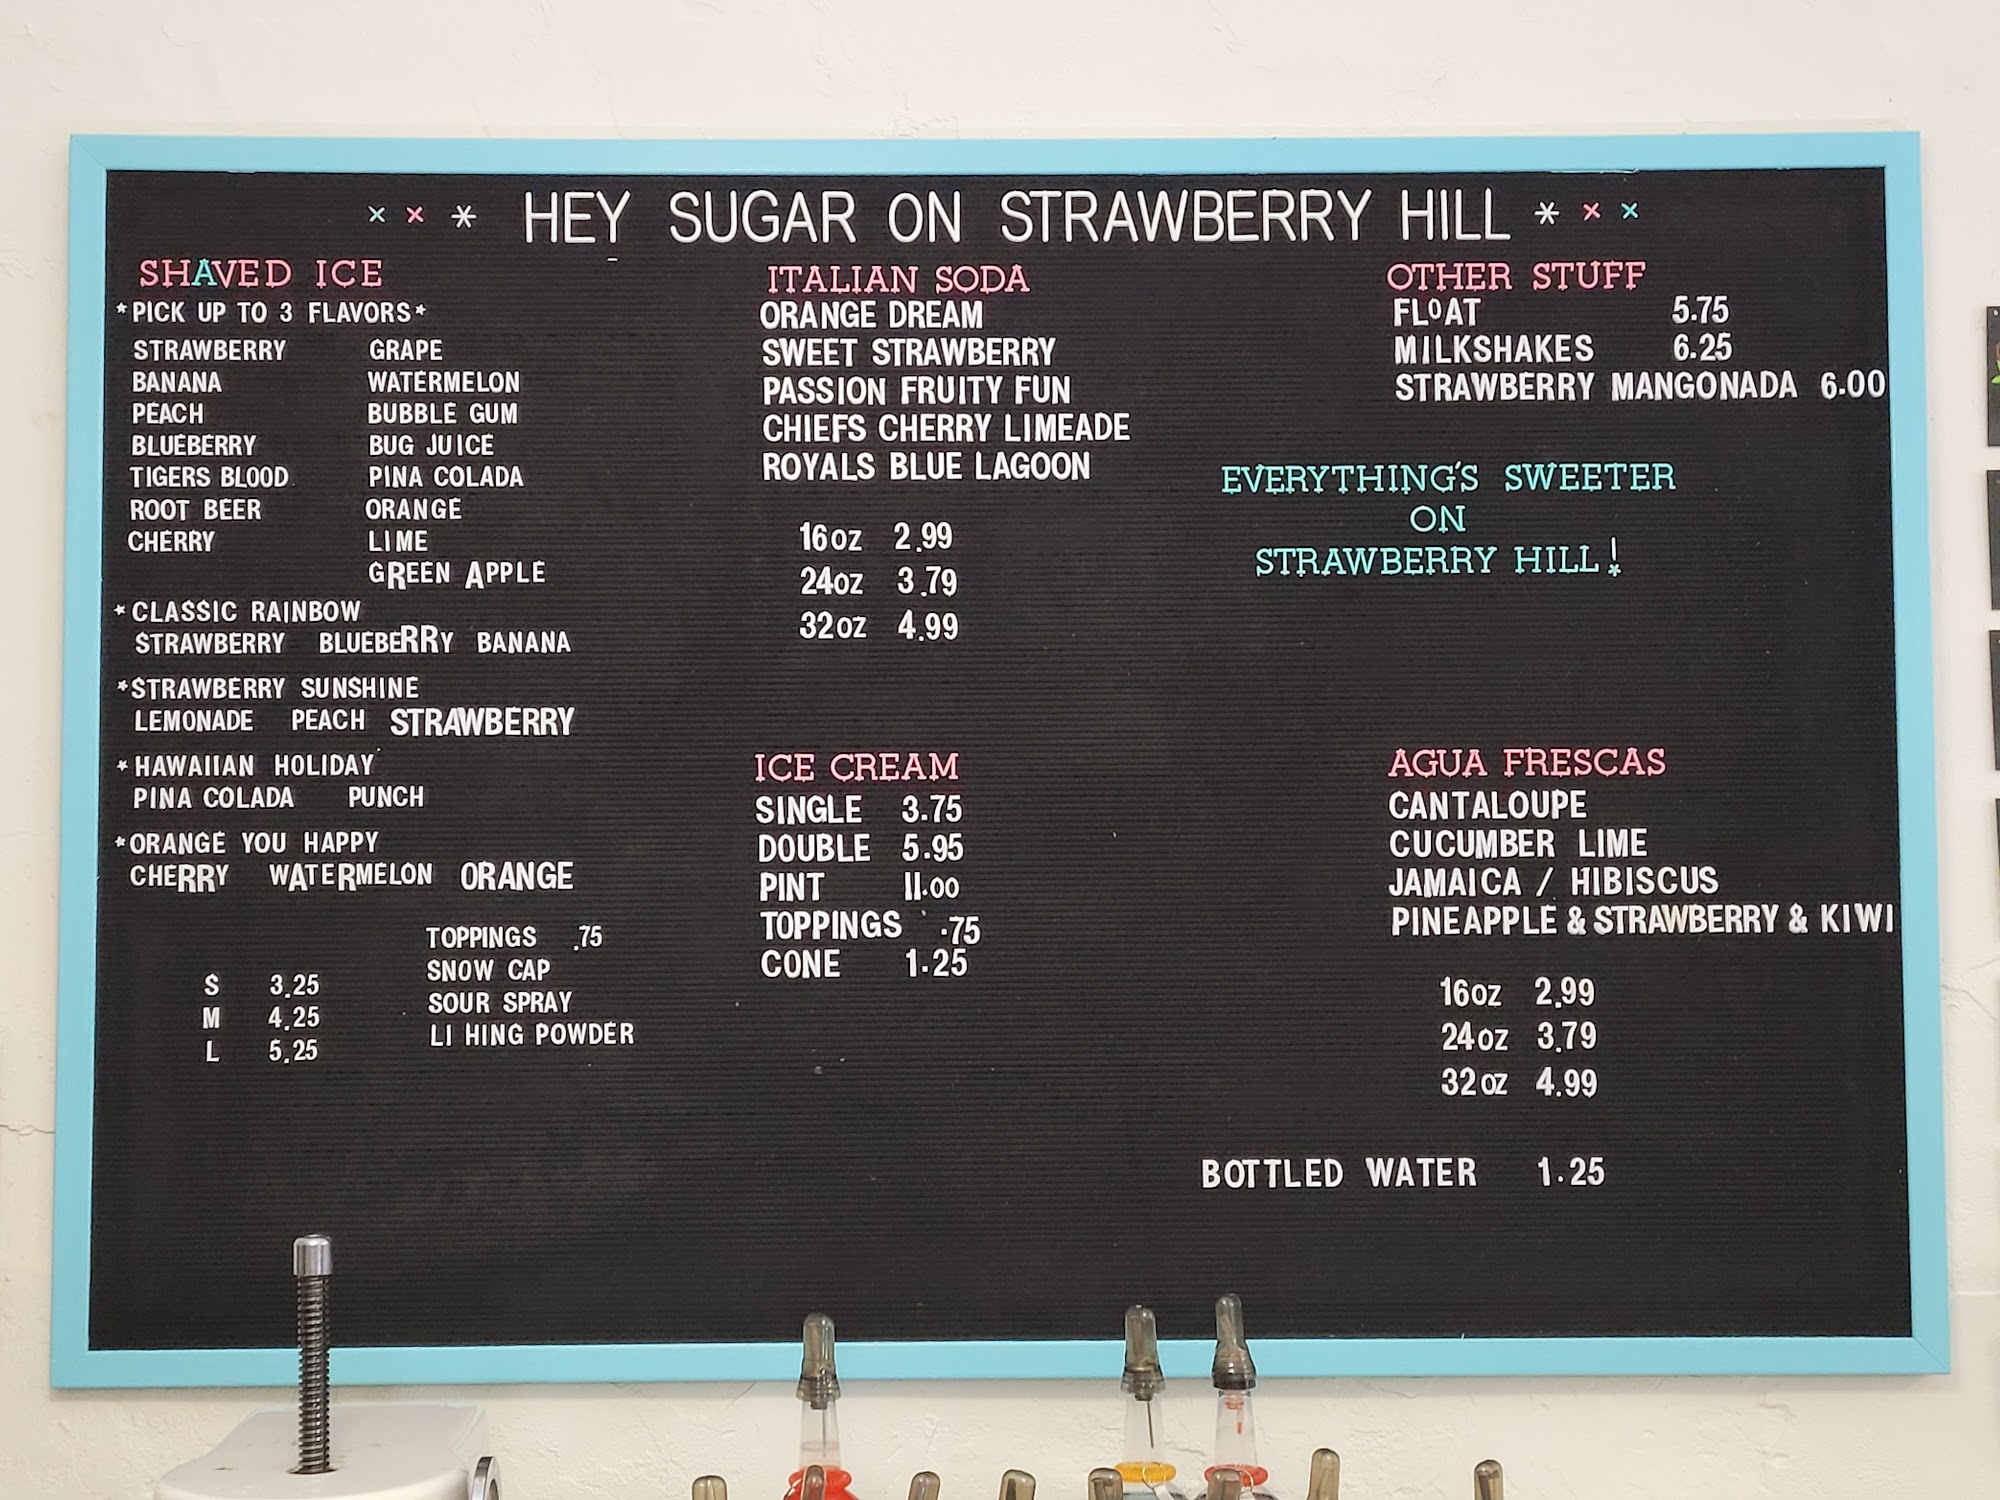 × × * HEY SUGAR ON STRAWBERRY HILL * × ×
SHAVED ICE
*PICK UP TO 3 FLAVORS*
STRAWBERRY GRAPE
BANANA WATERMELON
PEACH BUBBLE GUM
BLUEBERRY BUG JUICE
TIGERS BLOOD PINA COLADA
ROOT BEER ORANGE
CHERRY LIME
GREEN APPLE
*CLASSIC RAINBOW
STRAWBERRY BLUEBERRY BANANA
*STRAWBERRY SUNSHINE
LEMONADE PEACH STRAWBERRY
*HAWAIIAN HOLIDAY
PINA COLADA PUNCH
*ORANGE YOU HAPPY
CHERRY WATERMELON ORANGE
S 3.25
M 4.25
L 5.25
TOPPINGS .75
SNOW CAP
SOUR SPRAY
LI HING POWDER
ITALIAN SODA
ORANGE DREAM
SWEET STRAWBERRY
PASSION FRUITY FUN
CHIEFS CHERRY LIMEADE
ROYALS BLUE LAGOON
16OZ 2.99
24OZ 3.79
32OZ 4.99
ICE CREAM
SINGLE 3.75
DOUBLE 5.95
PINT 11.00
TOPPINGS .75
CONE 1.25
OTHER STUFF
FLOAT 5.75
MILKSHAKES 6.25
STRAWBERRY MANGONADA 6.00
EVERYTHING'S SWEETER
ON
STRAWBERRY HILL!
AGUA FRESCAS
CANTALOUPE
CUCUMBER LIME
JAMAICA / HIBISCUS
PINEAPPLE & STRAWBERRY & KIWI
16OZ 2.99
24OZ 3.79
32OZ 4.99
BOTTLED WATER 1.25